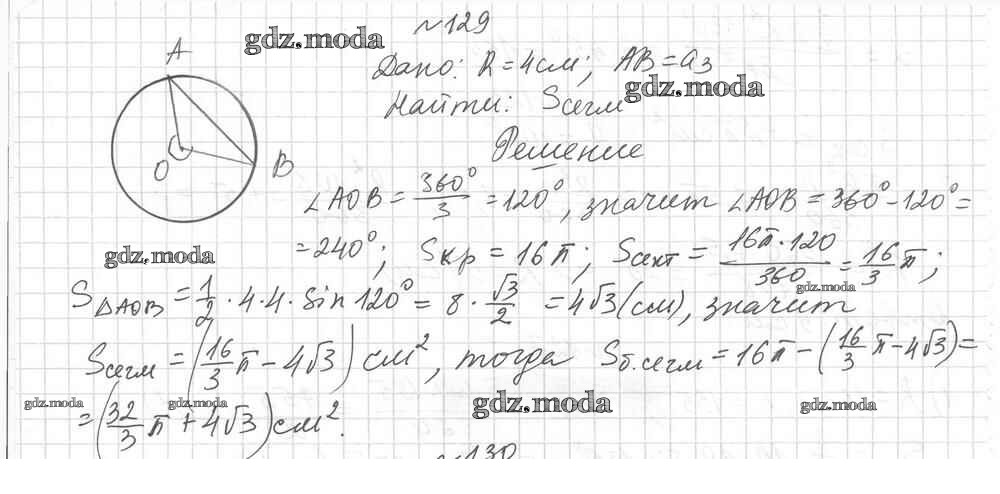 №129
gdz.moda
A
Дано: R = 4см; AB = a₃
gdz.moda
Найти: Sсегм
Решение
O
B
∠AOB = 360°/3 = 120°, значит ∠AOB = 360° - 120° =
= 240°; Sкр = 16π; Sсект = 16π·120/360 = 16/3 π;
gdz.moda
gdz.moda
S△AOB = 1/2 · 4 · 4 · sin 120° = 8 · √3/2 = 4√3 (см), значит
Sсегм = (16/3 π - 4√3) см², тогда Sб.сегм = 16π - (16/3 π - 4√3) =
gdz.moda
gdz.moda
gdz.moda
gdz.moda
= (32/3 π + 4√3) см².
№130